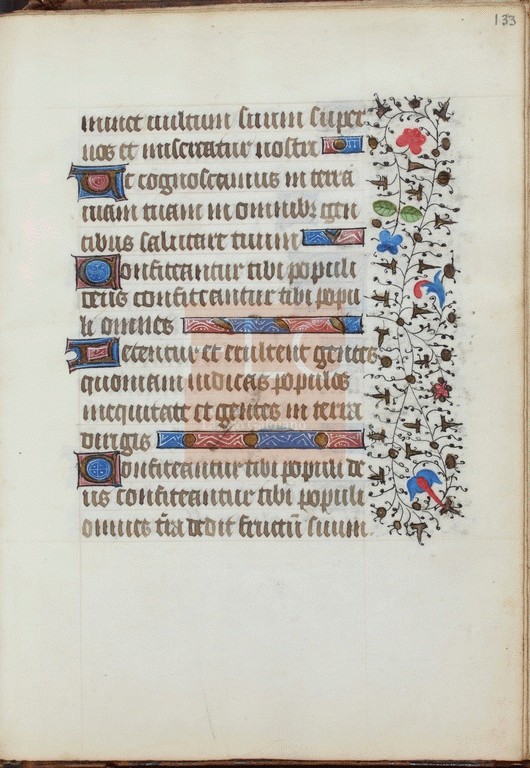 133
minet vultum suum super
nos et misereatur nostri
Ut cognoscamus in terra
viam tuam in omnibz gen
tibus salutare tuum
Confiteantur tibi populi
deus confiteantur tibi popu
li omnes
Letentur et exultent gentes
quoniam iudicas populos
inequitate et gentes in terra
dirigis
Confiteantur tibi populi de
us confiteantur tibi populi
omnes tr̄a dedit fructū suum